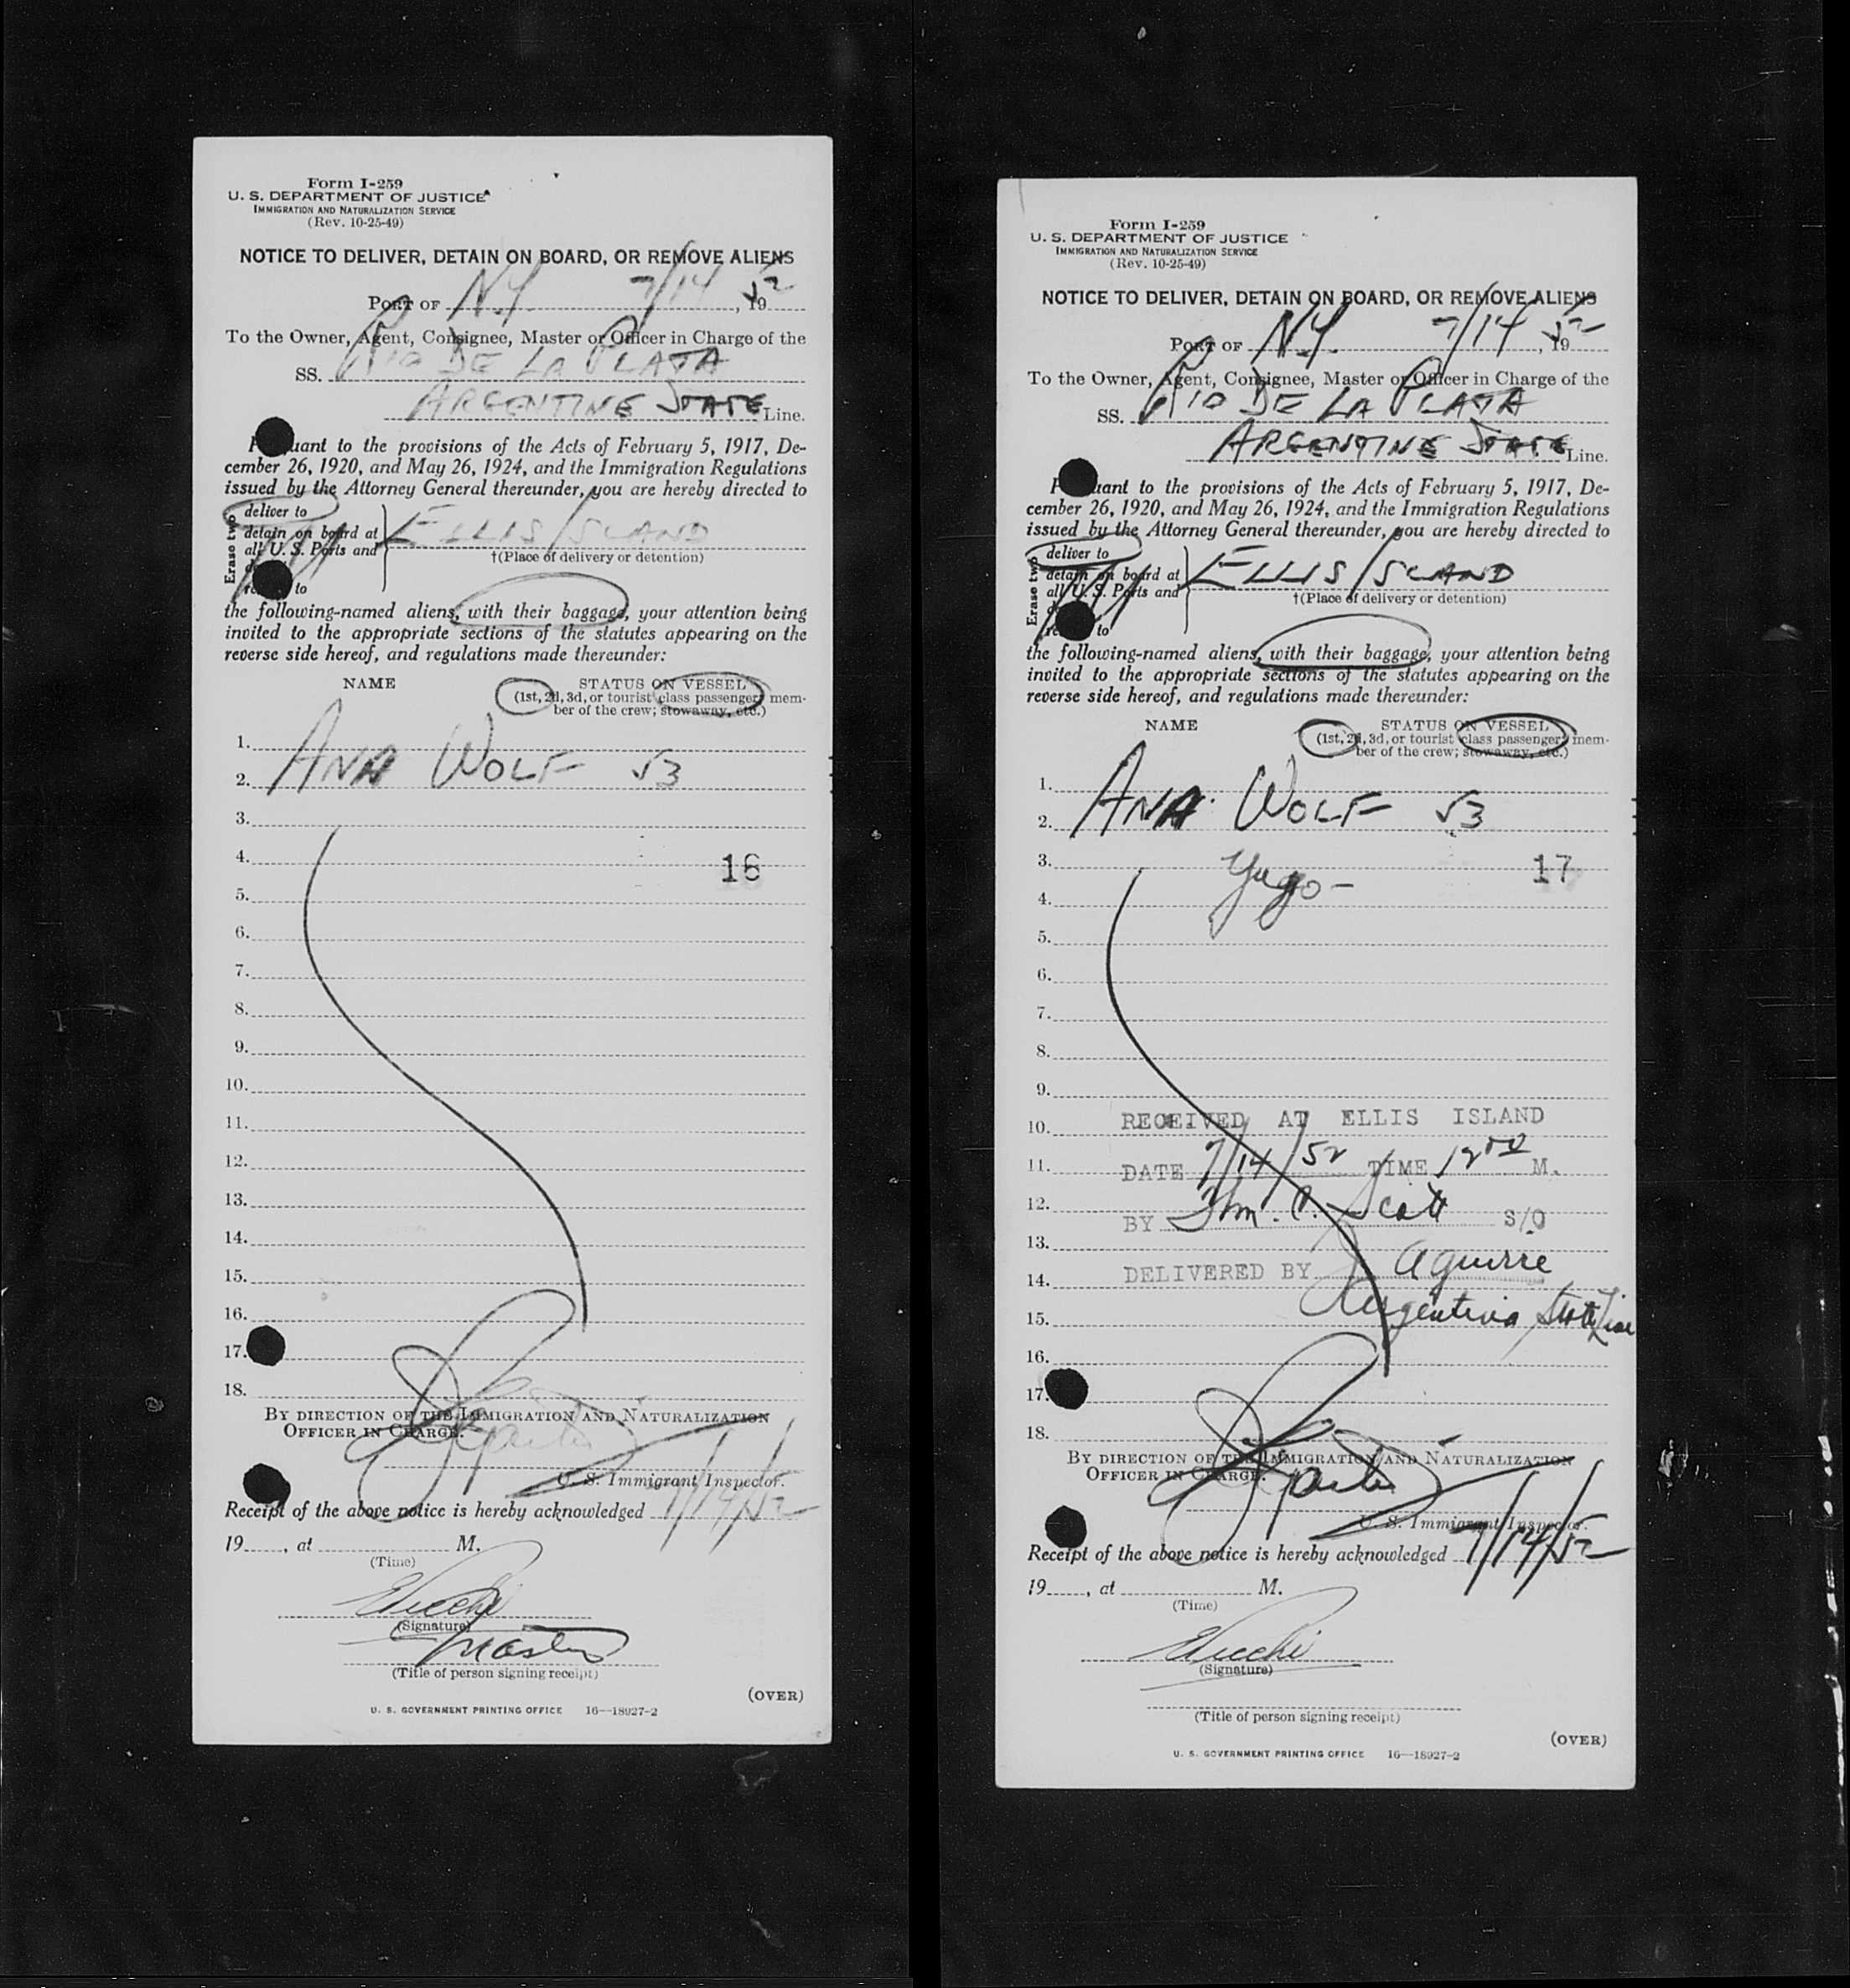 Form I-259
U. S. DEPARTMENT OF JUSTICE
IMMIGRATION AND NATURALIZATION SERVICE
(Rev. 10-25-49)
NOTICE TO DELIVER, DETAIN ON BOARD, OR REMOVE ALIENS
PORT OF N.Y. 7/14, 1952
To the Owner, Agent, Consignee, Master or Officer in Charge of the
SS. RIO DE LA PLATA
ARGENTINE STATE Line.
uant to the provisions of the Acts of February 5, 1917, De-
cember 26, 1920, and May 26, 1924, and the Immigration Regulations
issued by the Attorney General thereunder, you are hereby directed to
Erase two
deliver to
detain on board at
all U. S. Ports and
to
ELLIS ISLAND
†(Place of delivery or detention)
the following-named aliens, with their baggage, your attention being
invited to the appropriate sections of the statutes appearing on the
reverse side hereof, and regulations made thereunder:
NAME STATUS ON VESSEL
(1st, 2d, 3d, or tourist class passenger; mem-
ber of the crew; stowaway, etc.)
1.
2. ANA WOLF 53
3.
4. 16
5.
6.
7.
8.
9.
10.
11.
12.
13.
14.
15.
16.
17.
18.
BY DIRECTION OF THE IMMIGRATION AND NATURALIZATION
OFFICER IN CHARGE.
U. S. Immigrant Inspector.
Receipt of the above notice is hereby acknowledged 7/14/52
19, at M.
(Time)
(Signature)
Master
(Title of person signing receipt)
(OVER)
U. S. GOVERNMENT PRINTING OFFICE 16—18927-2
Form I-259
U. S. DEPARTMENT OF JUSTICE
IMMIGRATION AND NATURALIZATION SERVICE
(Rev. 10-25-49)
NOTICE TO DELIVER, DETAIN ON BOARD, OR REMOVE ALIENS
PORT OF N.Y. 7/14, 1952
To the Owner, Agent, Consignee, Master or Officer in Charge of the
SS. RIO DE LA PLATA
ARGENTINE STATE Line.
uant to the provisions of the Acts of February 5, 1917, De-
cember 26, 1920, and May 26, 1924, and the Immigration Regulations
issued by the Attorney General thereunder, you are hereby directed to
Erase two
deliver to
detain on board at
all U. S. Ports and
to
ELLIS ISLAND
†(Place of delivery or detention)
the following-named aliens, with their baggage, your attention being
invited to the appropriate sections of the statutes appearing on the
reverse side hereof, and regulations made thereunder:
NAME STATUS ON VESSEL
(1st, 2d, 3d, or tourist class passenger; mem-
ber of the crew; stowaway, etc.)
1.
2. ANA WOLF 53
3. Yugo- 17
4.
5.
6.
7.
8.
9.
10. RECEIVED AT ELLIS ISLAND
11. DATE 7/14/52 TIME 12 00 M.
12. BY Scott S/O
13.
14. DELIVERED BY J Aguirre
15. Argentina State Line
16.
17.
18.
BY DIRECTION OF THE IMMIGRATION AND NATURALIZATION
OFFICER IN CHARGE.
U. S. Immigrant Inspector.
Receipt of the above notice is hereby acknowledged 7/14/52
19, at M.
(Time)
(Signature)
(Title of person signing receipt)
(OVER)
U. S. GOVERNMENT PRINTING OFFICE 16—18927-2